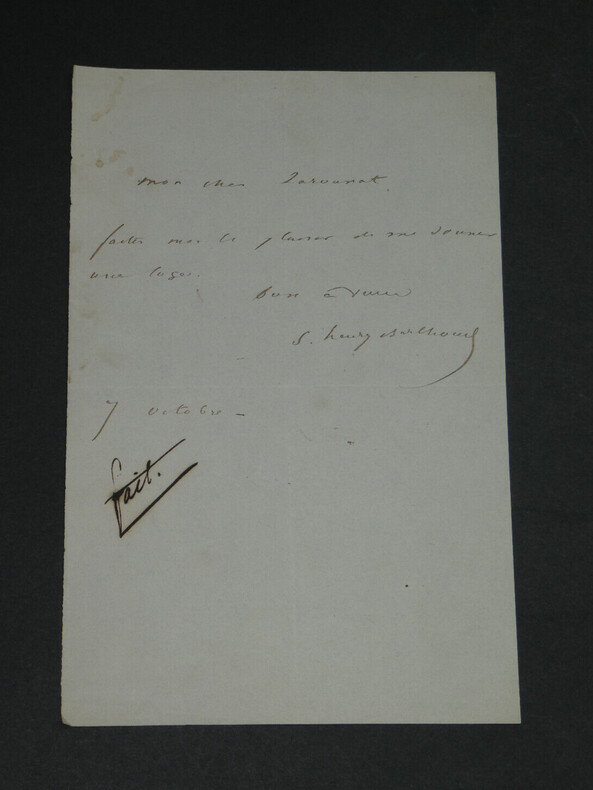 mon cher
faites moi le plaisir de me donner
une loge.
bien à vous
S. henry Berthoud
7 octobre -
fait.